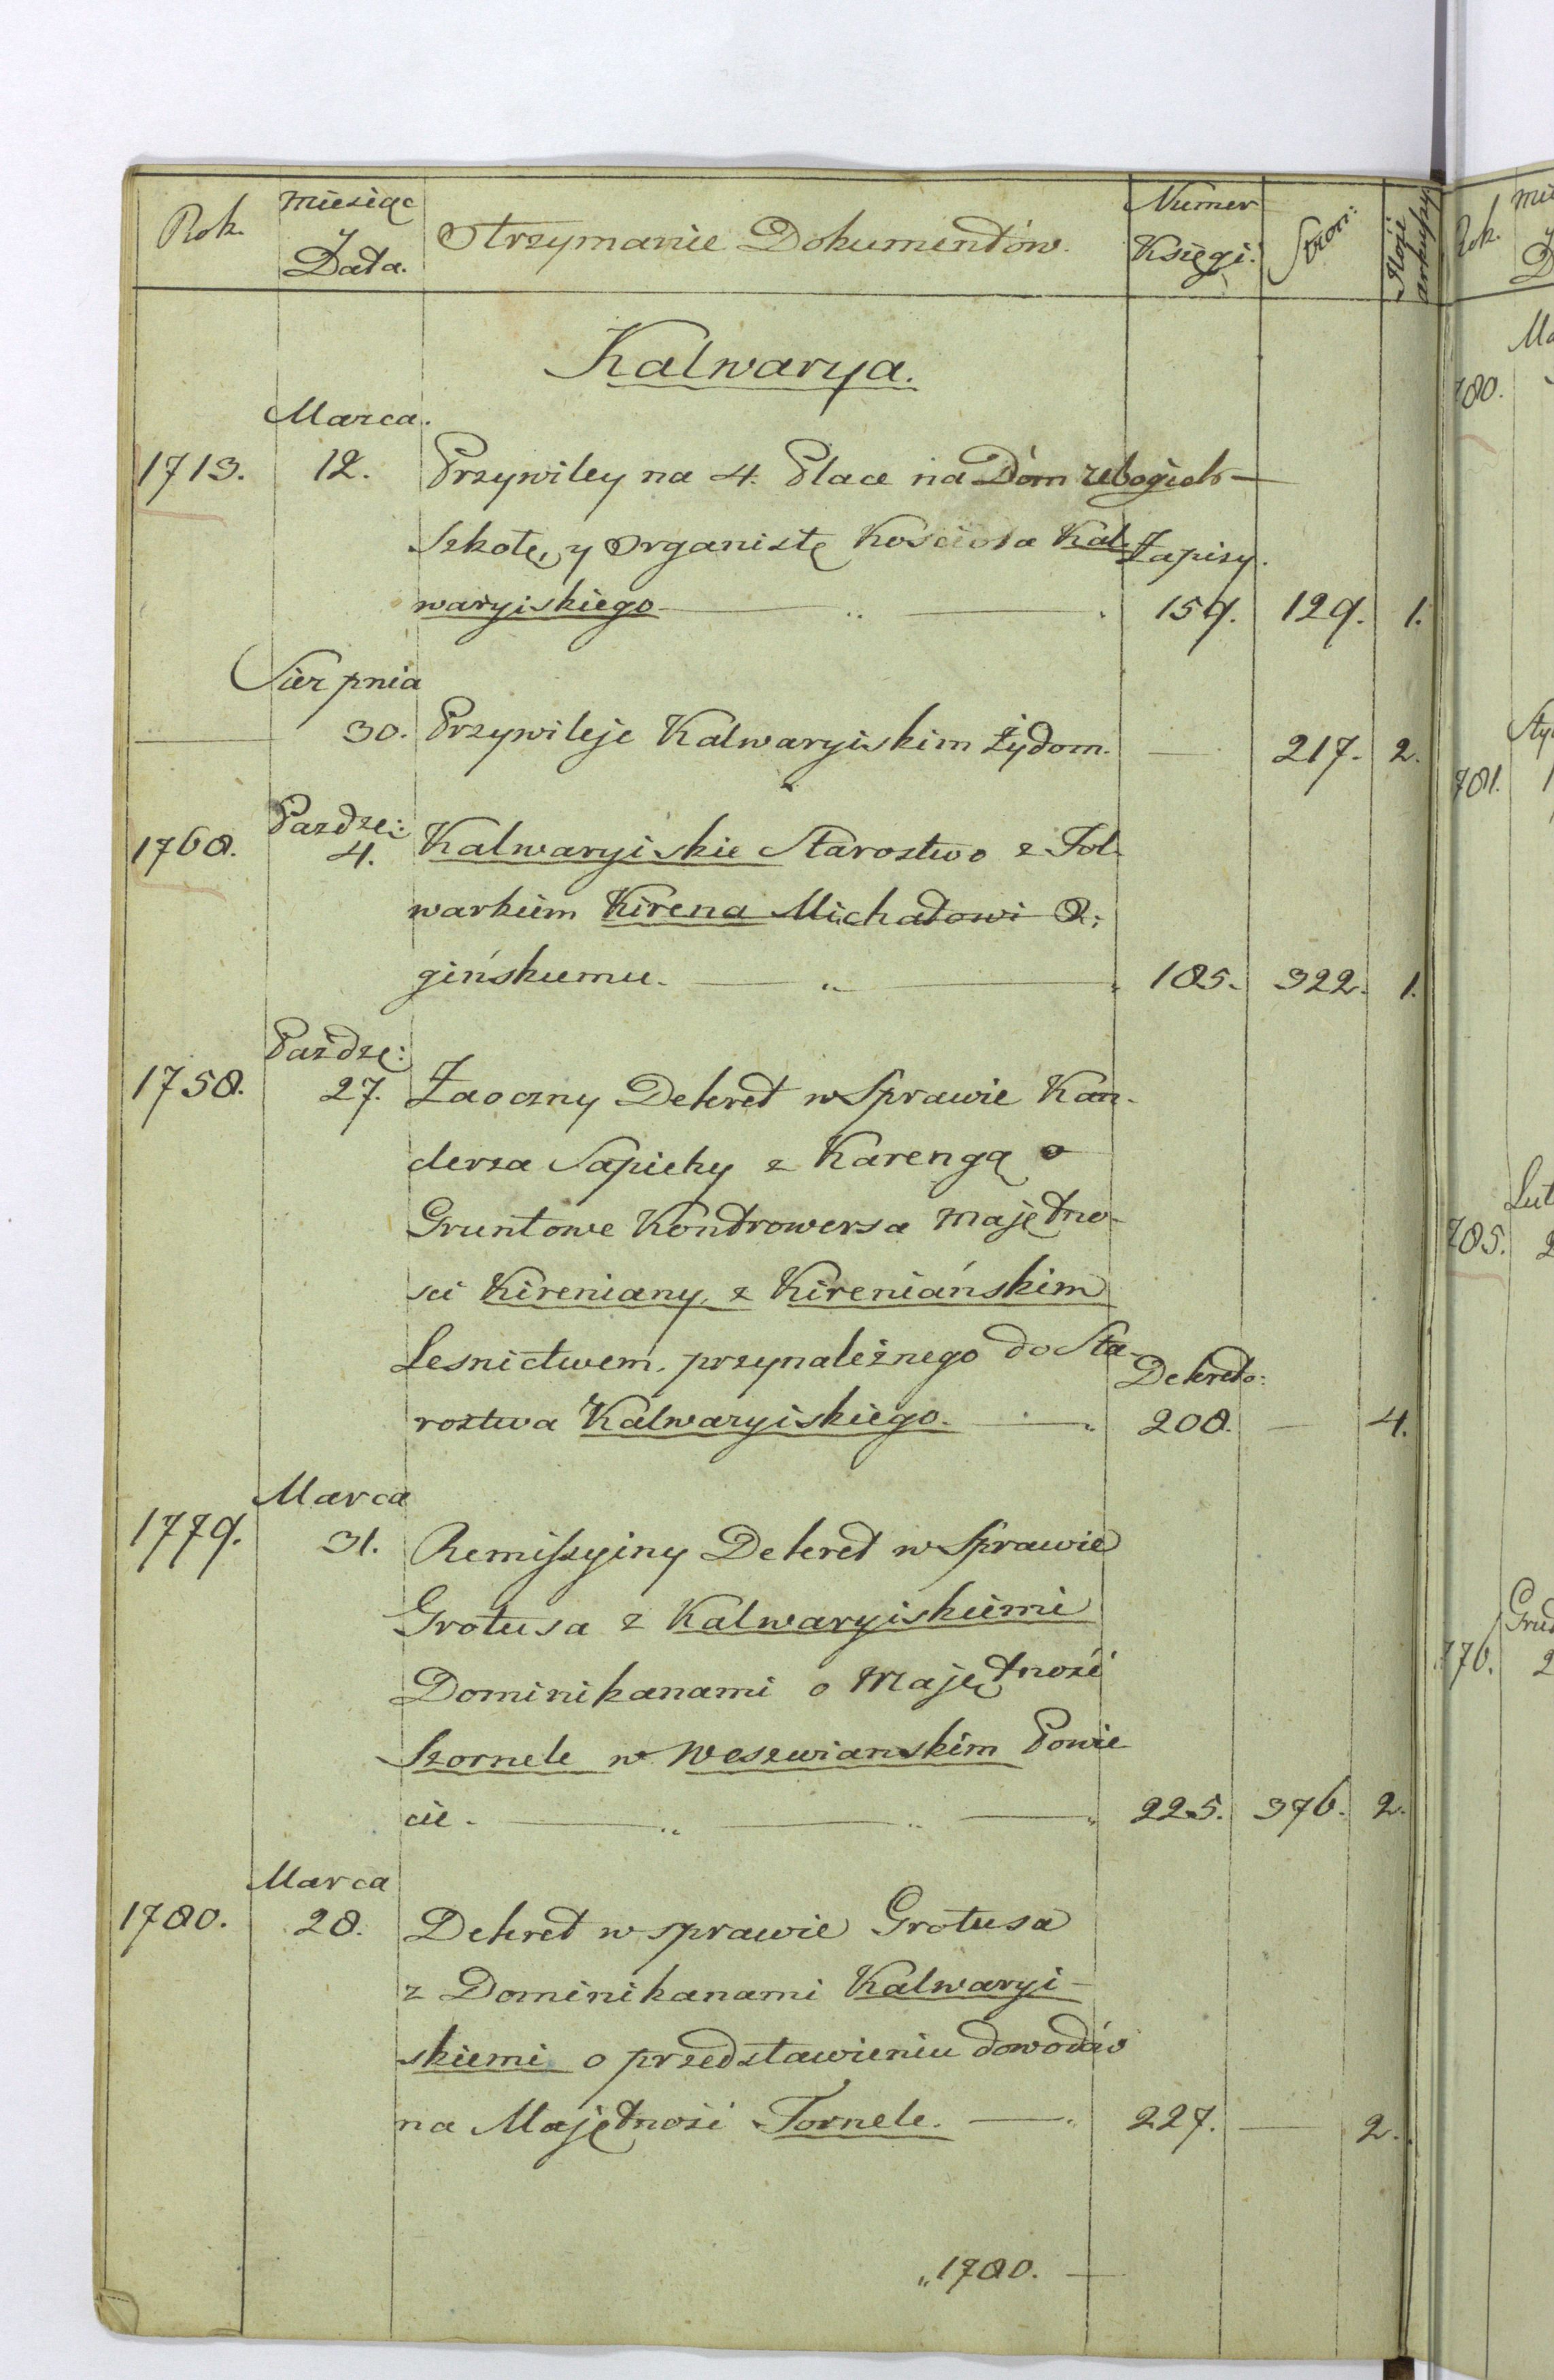 Rok. miesiąc y Data. Otrzymanie Dokumentów. Numer Księgi. Stron: Ilość arkuszy
Kalwarya.
Marca.
1713. 12. Przywiley na 4. Place na Dom ubogich
Szkołę, y Organistę Kościoła Kal- Zapisy.
waryiskiego 159. 129. 1.
Sierpnia
30. Przywileje Kalwaryiskim żydom. 217. 2.
Pazdze:
1768. 4. Kalwaryiskie Starostwo z Fol-
warkiem Kirena Michałowi O:
gińskiemu. 185. 322. 1.
Paźdze:
1758. 27. Zaoczny Dekret w Sprawie Kan-
clerza Sapiehy z Karengą o
Gruntowe Kontrowersa majętno-
sci Kireniany, z Kireniańskim
Lesnictwem, przynależnego do Sta-
Dekreto:
rostwa Kalwaryiskiego. 208. 4.
Marca
1779. 31. Remissyiny Dekret w Sprawie
Grotusa z Kalwaryiskiemi
Dominikanami o Majętność
Szornele w Weszwianskim Powie
cie. 225. 376. 2.
Marca
1780. 28. Dekret w sprawie Grotusa
z Dominikanami Kalwaryi-
skiemi o przedstawieniu dowodów
na Majętność Tornele. 227. 2.
„1780.